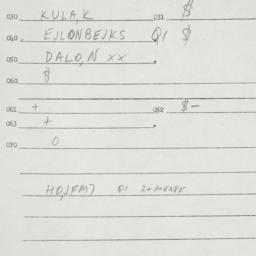 030. KULA,K 031. $
040. EJLONBEJKS Q1 $
050. DALO,N xx.
060. $
061. + 062. $-
063. +.
070. O
Q1